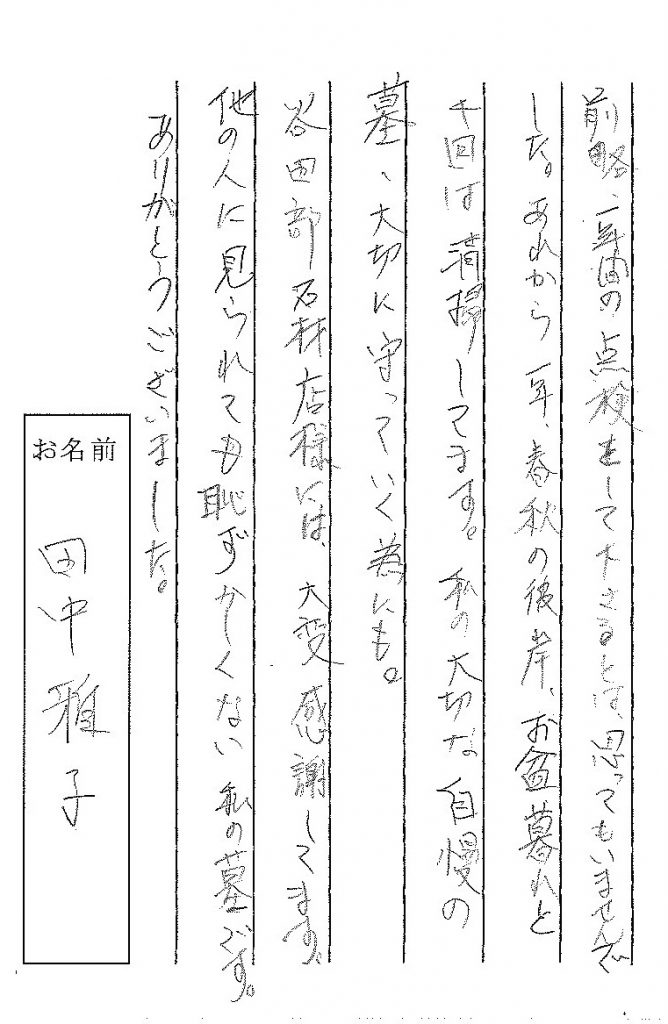 前略、一年間の点検をして下さるとは、思ってもいませんで
した。あれから一年、春秋の彼岸、お盆暮れと
十回は清掃してます。私の大切な自慢の
墓、大切に守っていく為にも。
谷田部石材店様には、大変感謝してます。
他の人に見られても恥ずかしくない私の墓です。
ありがとうございました。
お名前
田中雅子